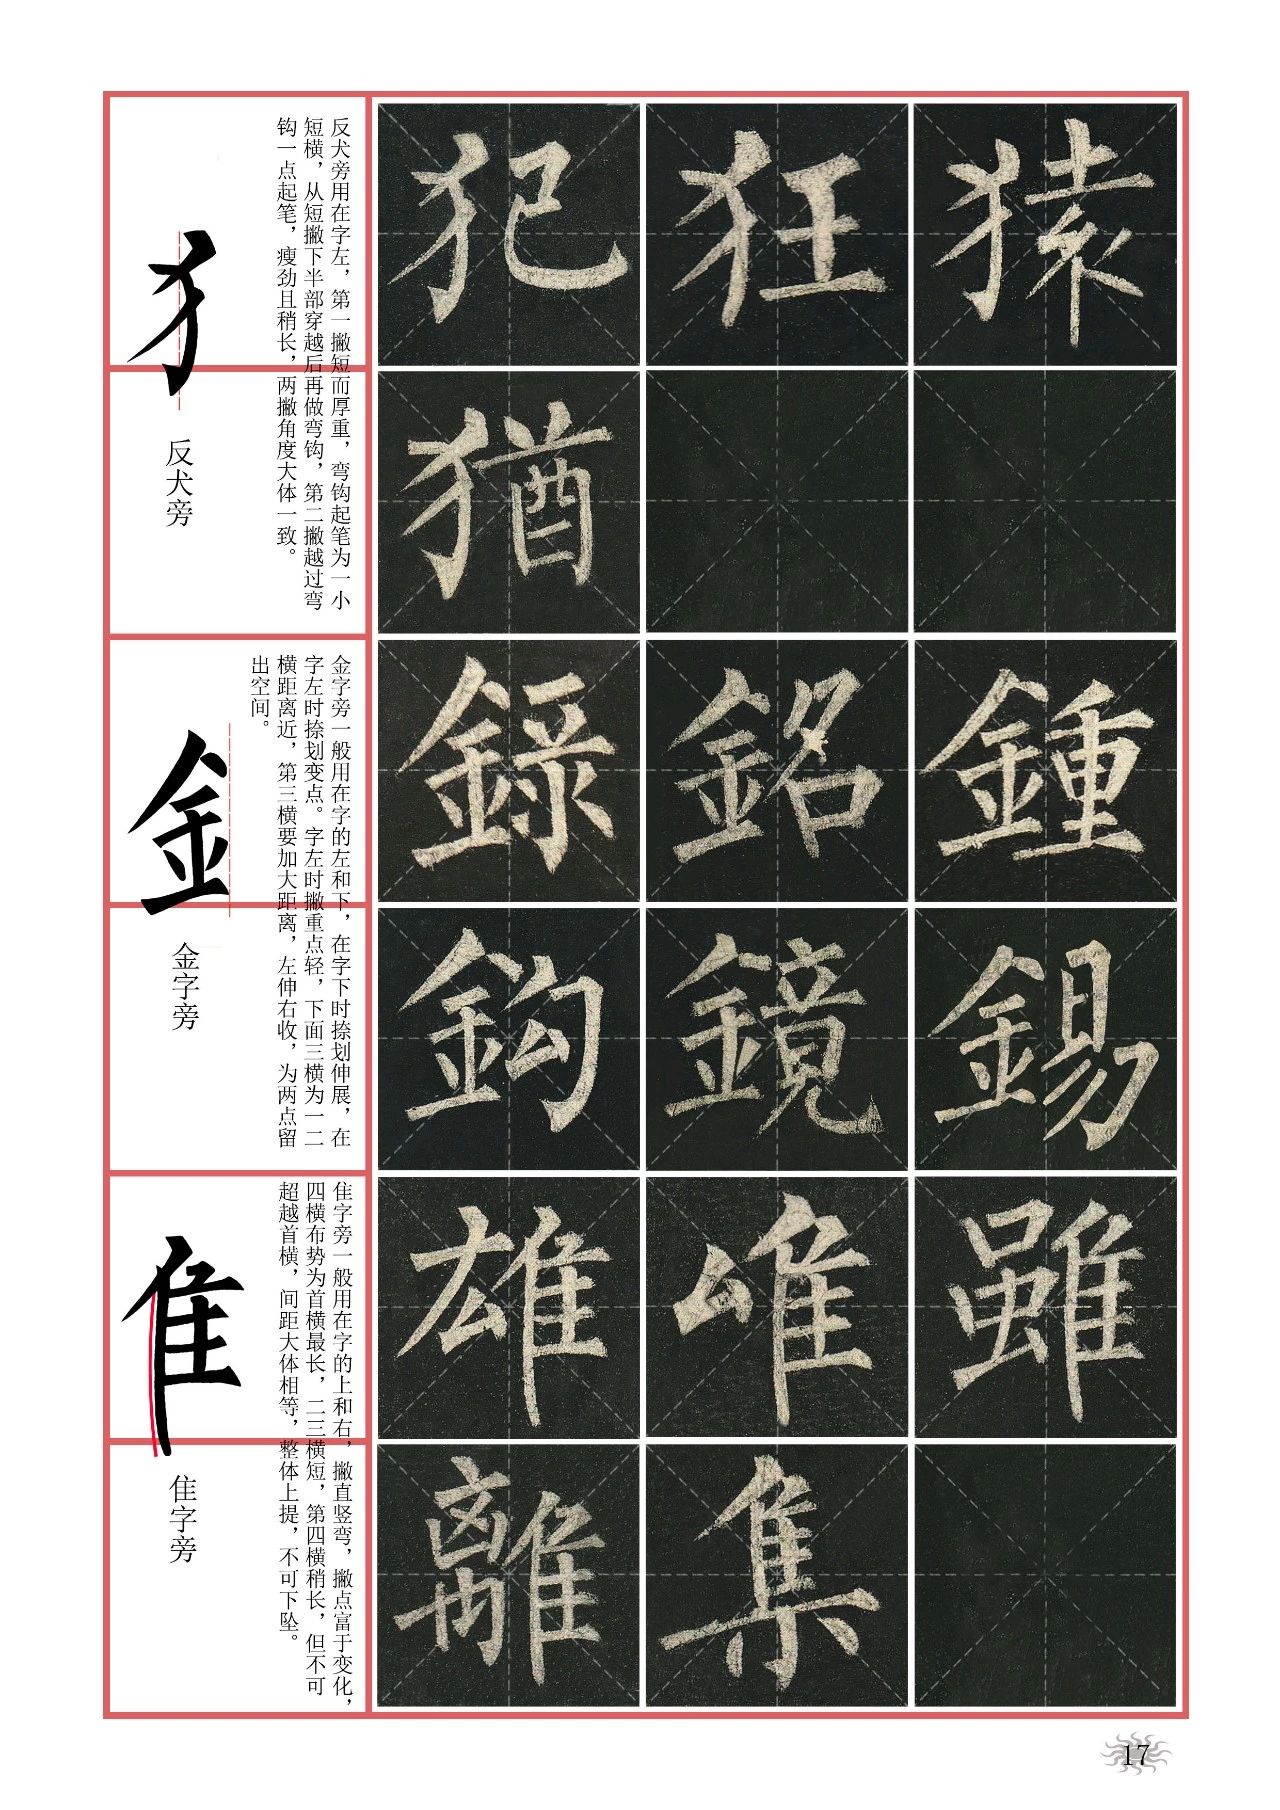 反犬旁用在字左，第一撇短而厚重，弯钩起笔为一小
短横，从短撇下半部穿越后再做弯钩，第二撇越过弯
钩一点起笔，瘦劲且稍长，两撇角度大体一致。
犭
反犬旁
犯 狂 猿
猶
金字旁一般用在字的左和下，在字下时捺划伸展，在
字左时捺划变点。字左时撇重点轻，下面三横为一二
横距离近，第三横要加大距离，左伸右收，为两点留
出空间。
釒
金字旁
録 銘 鍾
鈎 鏡 錫
隹字旁一般用在字的上和右，撇直竖弯，撇点富于变化，
四横布势为首横最长，二三横短，第四横稍长，但不可
超越首横，间距大体相等，整体上提，不可下坠。
隹
隹字旁
雄 唯 雖
離 集
17